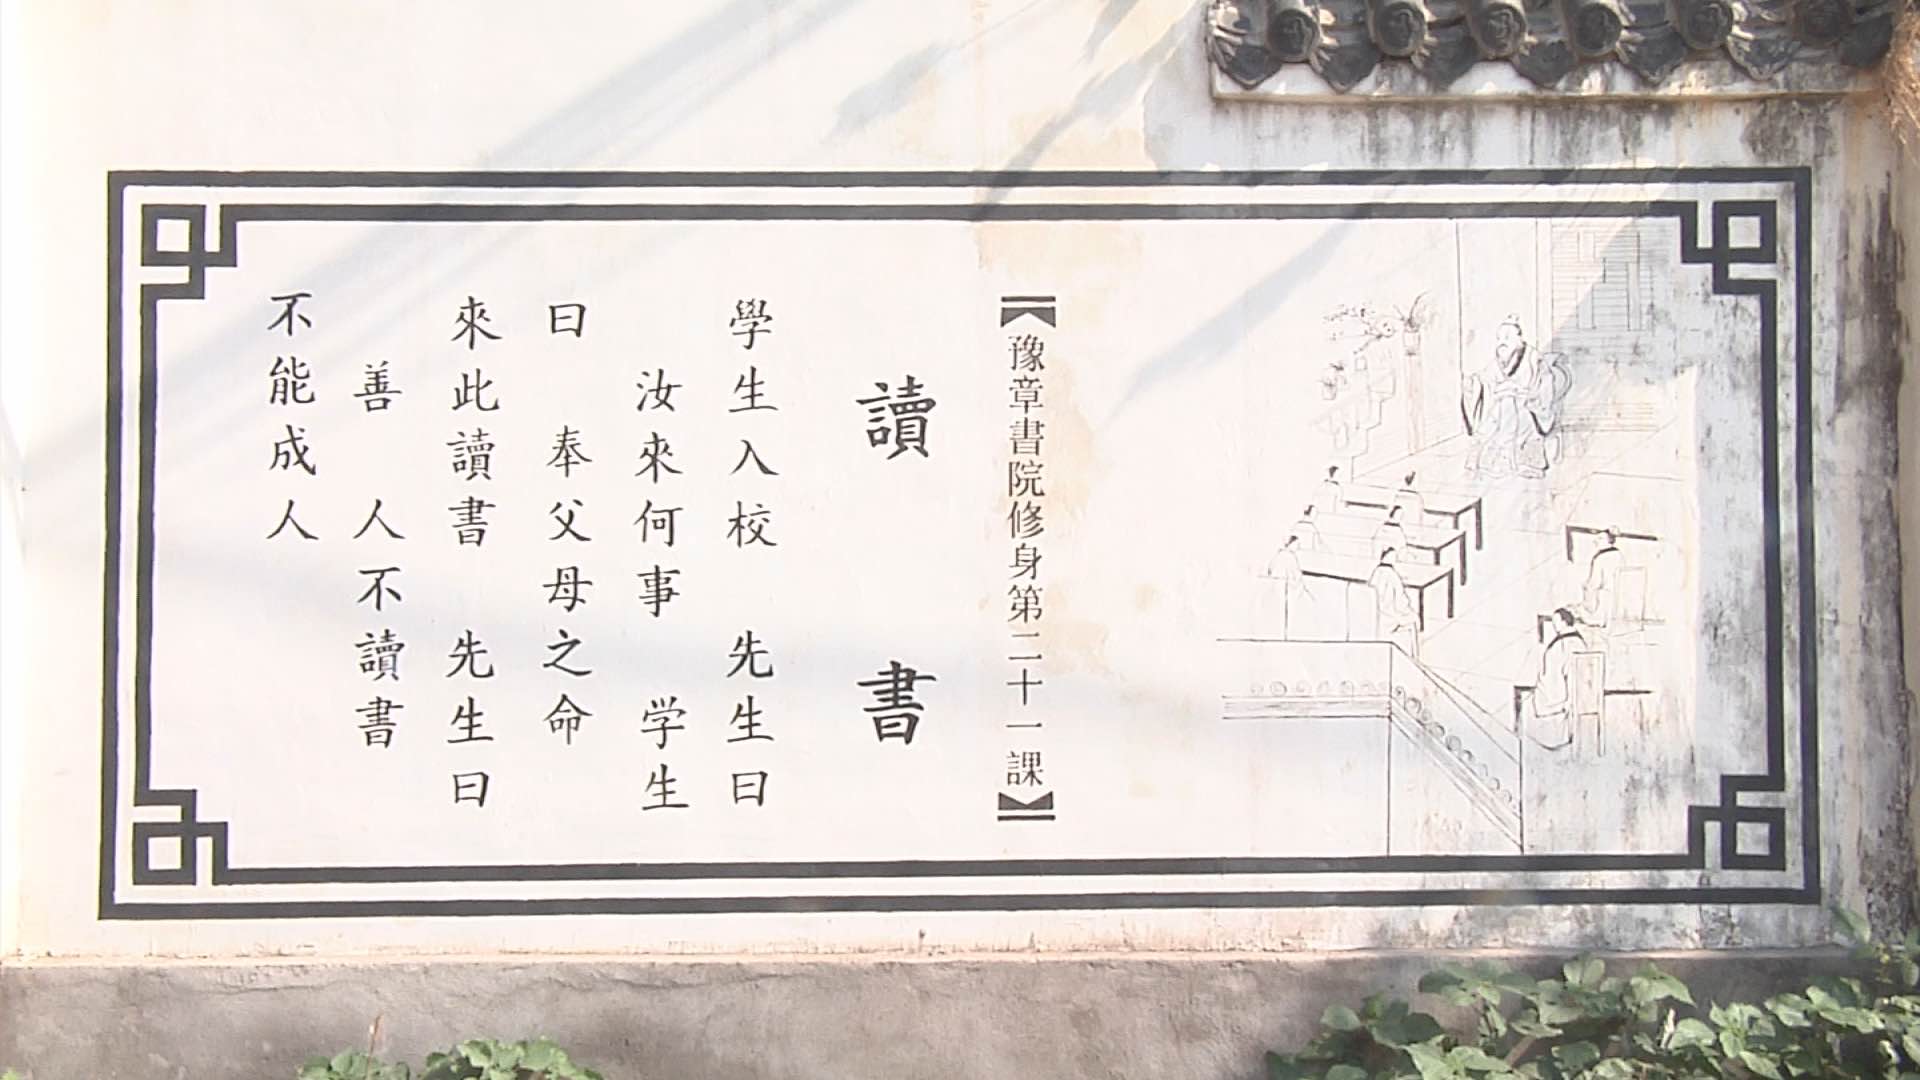 【豫章書院修身第二十一課】
讀書
學生入校 先生曰
汝來何事 学生
曰 奉父母之命
來此讀書 先生曰
善 人不讀書
不能成人